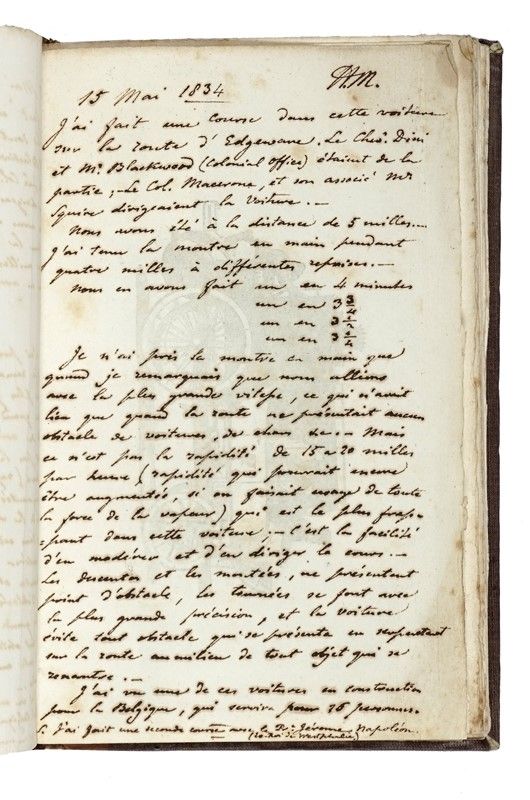 H.M.
15 Mai 1834
J'ai fait une course dans cette voiture
sur la route d'Edgeware. Le Chev. Dini
et Mr Blackwood (Colonial Office) étaient de la
partie ;- Le Col. Macerone, et son associé Mr
Squire dirigeaient la voiture. -
Nous avons été à la distance de 5 milles. -
J'ai tenu la montre en main pendant
quatre milles à différentes reprises. -
Nous en avons fait un en 4 minutes
un en 3 3/4
un en 3
un en 3
Je n'ai pris la montre en main que
quand je remarquais que nous allions
avec la plus grande vitesse, ce qui n'avait
lieu que quand la route ne présentait aucun
obstacle de voitures, de chars &c. - Mais
ce n'est pas la rapidité de 15 a 20 milles
par heure (rapidité qui pourrait encore
être augmentée, si on faisait usage de toute
la force de la vapeur) qui est le plus frap=
=pant dans cette voiture ;- c'est la facilité
d'en modérer et d'en diriger le cours. -
Les descentes et les montées, ne présentent
point d'obstacle, les tournées se font avec
la plus grande précision, et la voiture
évite tout obstacle qui se présente en serpentant
sur la route au milieu de tout objet qui se
rencontre. -
J'ai vu une de ces voitures en construction
pour la Belgique, qui servira pour 36 personnes.
J'ai fait une seconde course avec le Pce Jérome Napoléon.
(Ex-Roi de Westphalie)